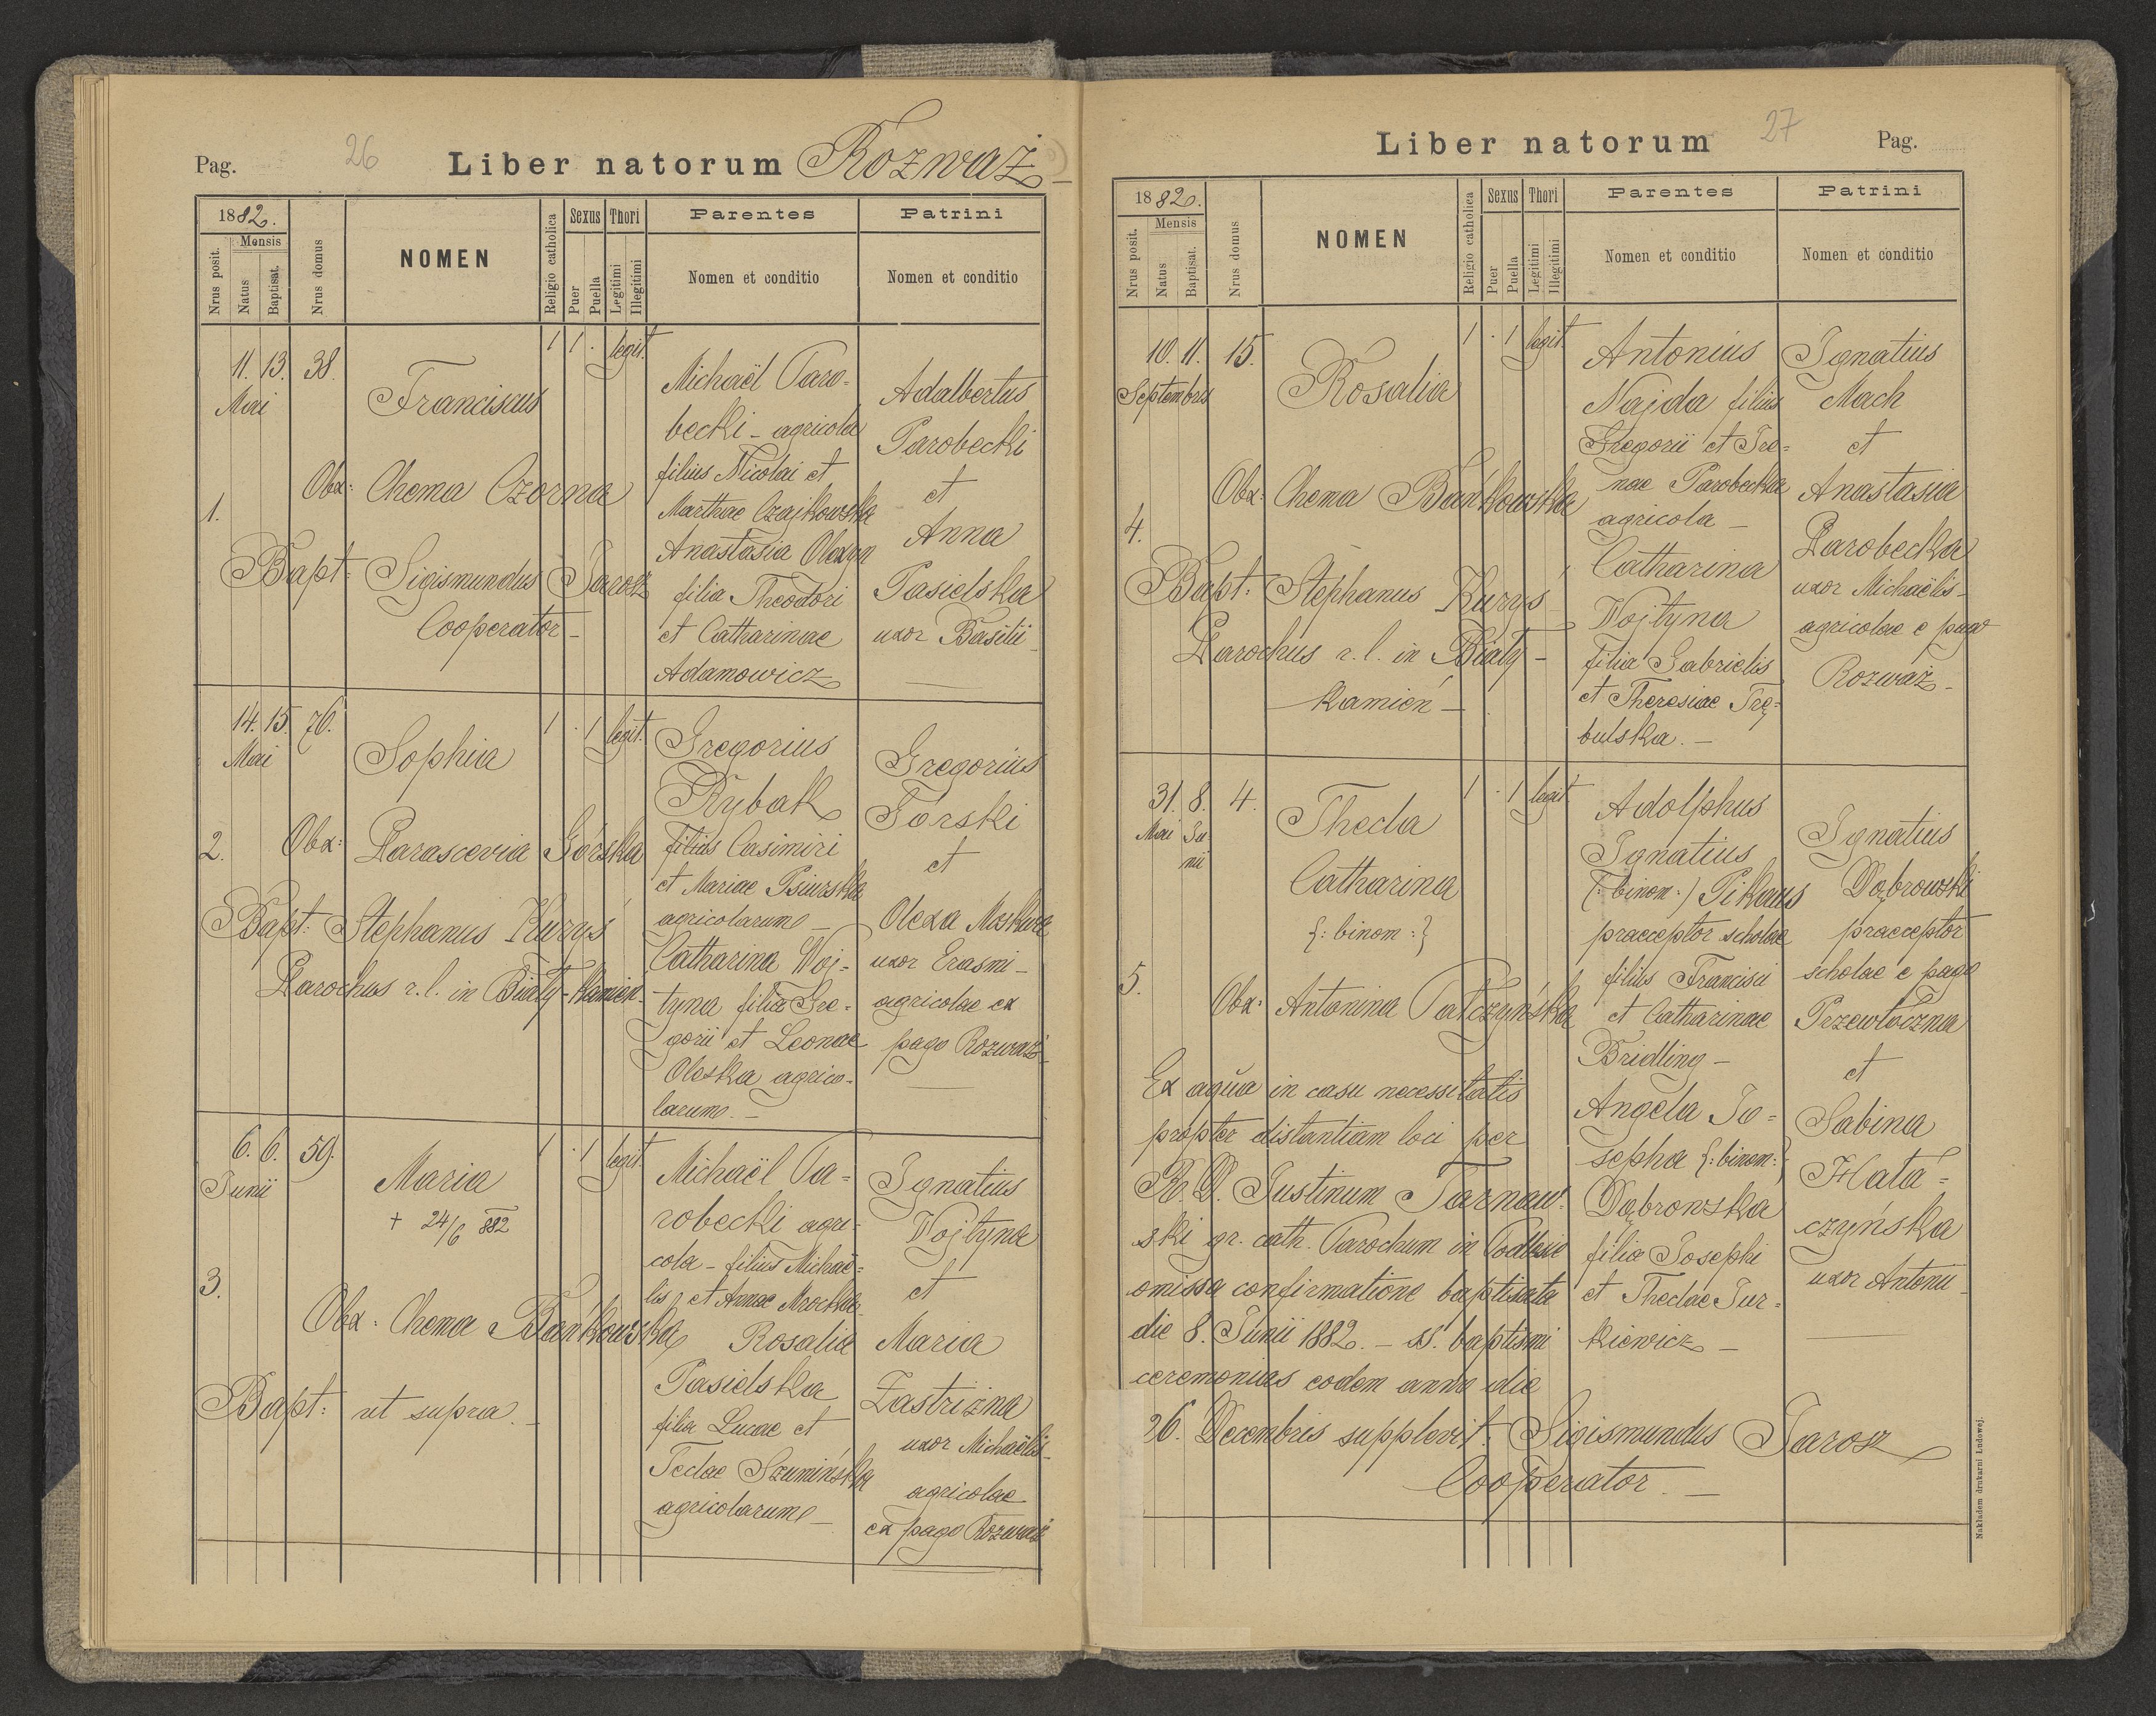 Pag.
26
Liber natorum Rozważ
1882.
Nrus posit.
Mensis
Natus
Baptisat.
Nrus domus
NOMEN
Religio catholica
Sexus
Puer
Puella
Thori
Legitimi
Illegitimi
Parentes
Nomen et conditio
Patrini
Nomen et conditio
1.
11. 13. 38.
Mai
Franciscus
Obx: Chema Czorna
Bapt: Sigismundus Jarosz
Cooperator –
1 1 · legit.
Michaël Paro=
becki – agricola
filius Nicolai et
Marthae Czajkowska
Anastasia Olexyn
filia Theodori
et Catharinae
Adamowicz
Adalbertus
Parobecki
et
Anna
Pasielska
uxor Basilii –
2.
14. 15. 76.
Mai
Sophia
Obx: Parascevia Górska
Bapt: Stephanus Kuryś
Parochus r. l. in Biały-Kamień
1 · 1 legit.
Gregorius
Rybak
filius Casimiri
et Mariae Psiurska
agricolarum –
Catharina Woj=
tyna filia Gre=
gorii et Leonae
Oleska agrico=
larum. –
Gregorius
Górski
et
Olexa Moskwa
uxor Erasmi –
agricolae ex
pago Rozważ –
3.
6. 6. 59.
Junii
Maria
+ 24/6 882
Obx: Chema Bańkowska
Bapt: ut supra. –
1 · 1 legit.
Michaël Pa=
robecki agri=
cola – filius Michaë=
lis et Annae Mroczka
Rosalia
Pasielska
filia Lucae et
Teclae Szumińska
agricolarum –
Ignatius
Wojtyna
et
Maria
Zastrizna
uxor Michaëlis –
agricolae
ex pago Rozważ
Liber natorum
27
Pag.
1882.
Nrus posit.
Mensis
Natus
Baptisat.
Nrus domus
NOMEN
Religio catholica
Sexus
Puer
Puella
Thori
Legitimi
Illegitimi
Parentes
Nomen et conditio
Patrini
Nomen et conditio
4.
10. 11. 15.
Septembris
Rosalia
Obx: Chema Bańkowska
Bapt: Stephanus Kuryś
Parochus r. l. in Biały –
Kamień –
1 · 1 legit.
Antonius
Najda filius
Gregorii et Ire=
nae Parobecka
agricola –
Catharina
Wojtyna
filia Gabrielis
et Theresiae Trę=
bulska. –
Ignatius
Mach
et
Anastasia
Parobecka
uxor Michaëlis –
agricolae e pago
Rozważ –
5.
31. 8. 4.
Mai Ju
nii
Thecla
Catharina
{: binom :}
Obx: Antonina Patczyńska
Ex aqua in casu necessitatis
propter distantiam loci per
R. D. Justinum Tarnaw=
ski gr. cath. Parochum in Podlesie
omissa confirmatione baptisata
die 8. Junii 1882. – ss. baptismi
ceremonias eodem anno die
26. Decembris supplevit: Sigismundus Jarosz
Cooperator. –
1 · 1 legit.
Adolphus
Ignatius
(: binom :) Pikaus
praeceptor scholae
filius Francisci
et Catharinae
Bridling –
Angela Jo=
sepha {: binom :}
Dąbrowska
filia Josephi
et Theclae Jur=
kiewicz –
Ignatius
Dąbrowski
praeceptor
scholae e pago
Przewłoczna
et
Sabina
Hała=
czyńska
uxor Antonii –
Nakładem drukarni Ludowej.